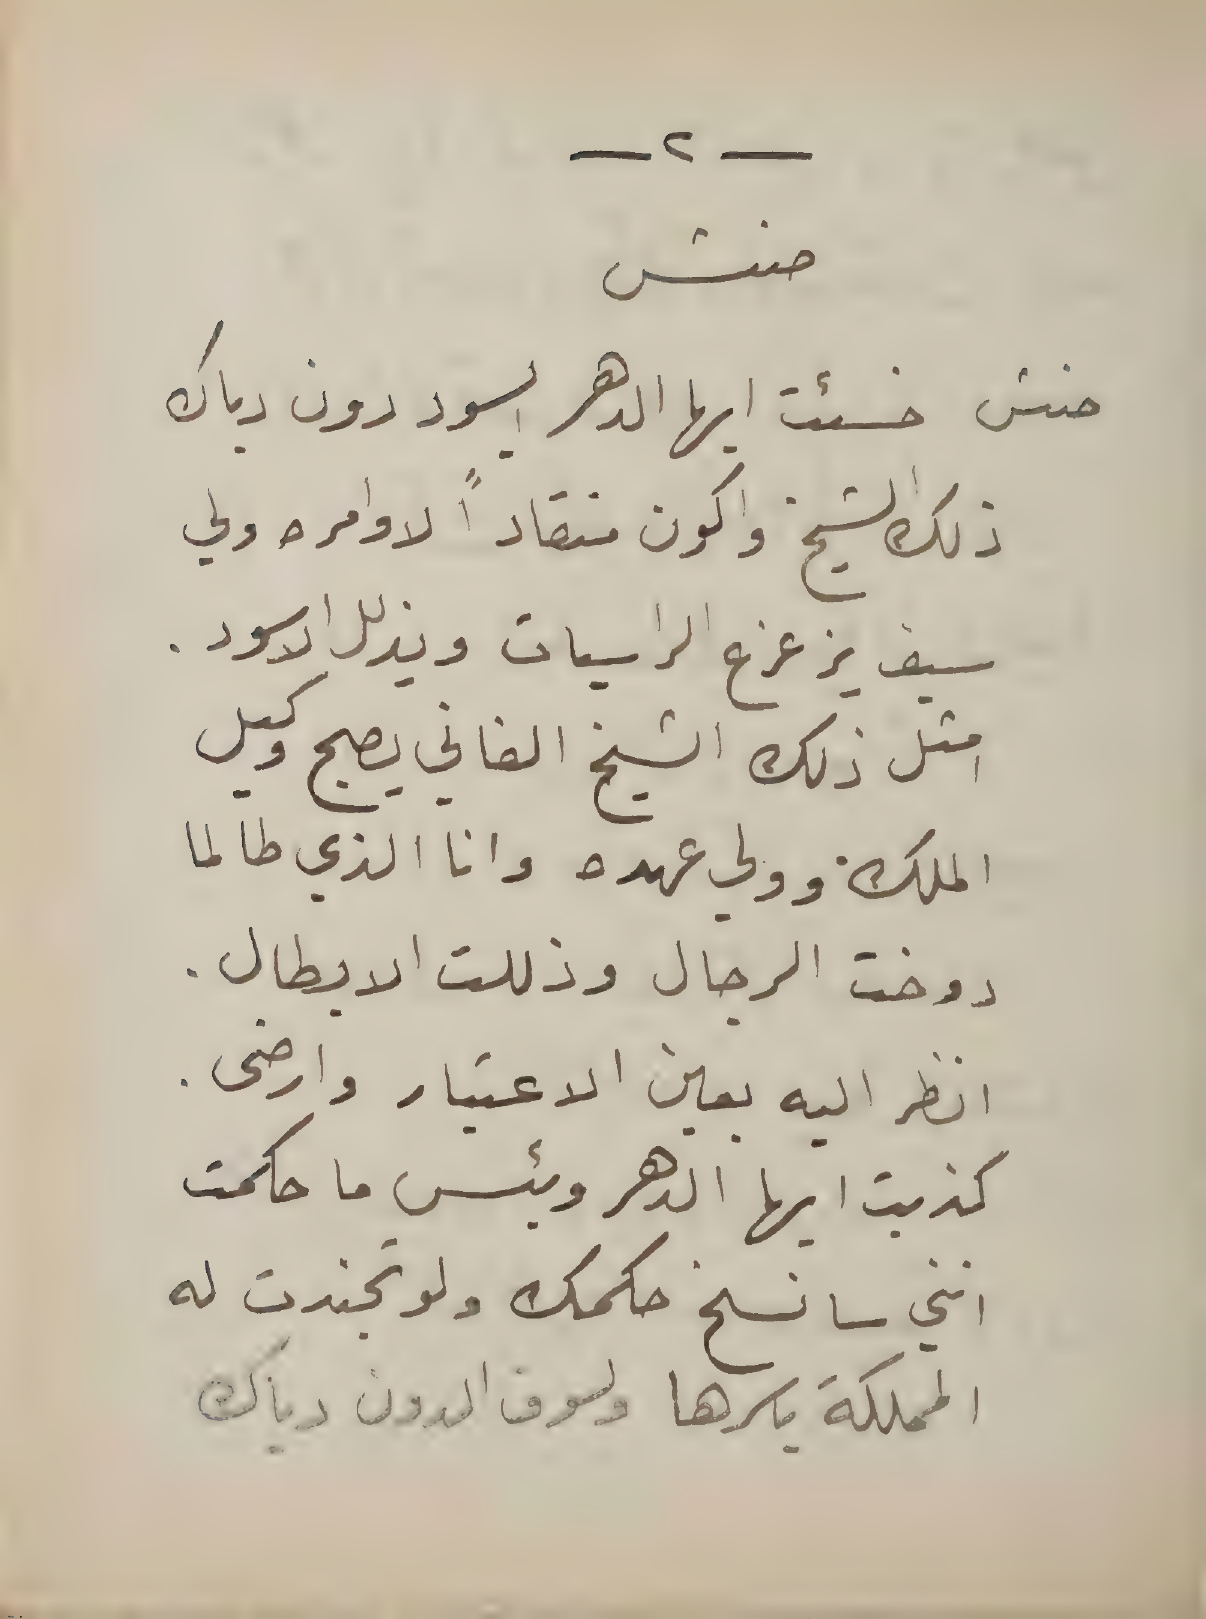 — ٢ —
حنتش
حنتش خسئت ايها الدهر ايسود دون دياك
ذلك الشيخ واكون منقاداً لاوامره ولي
سيف يزعزع الراسيات ويذلل الاسود .
امثل ذلك الشيخ الفاني يصبح وكيل
الملك وولي عهده وانا الذي طالما
دوخت الرجال وذللت الابطال .
انظر اليه بعين الاعتبار وارضى .
كذبت ايها الدهر وبئس ما حكمت
انني سانسخ حكمك ولو تجندت له
المملكة باسرها ولسوف الدون دياك